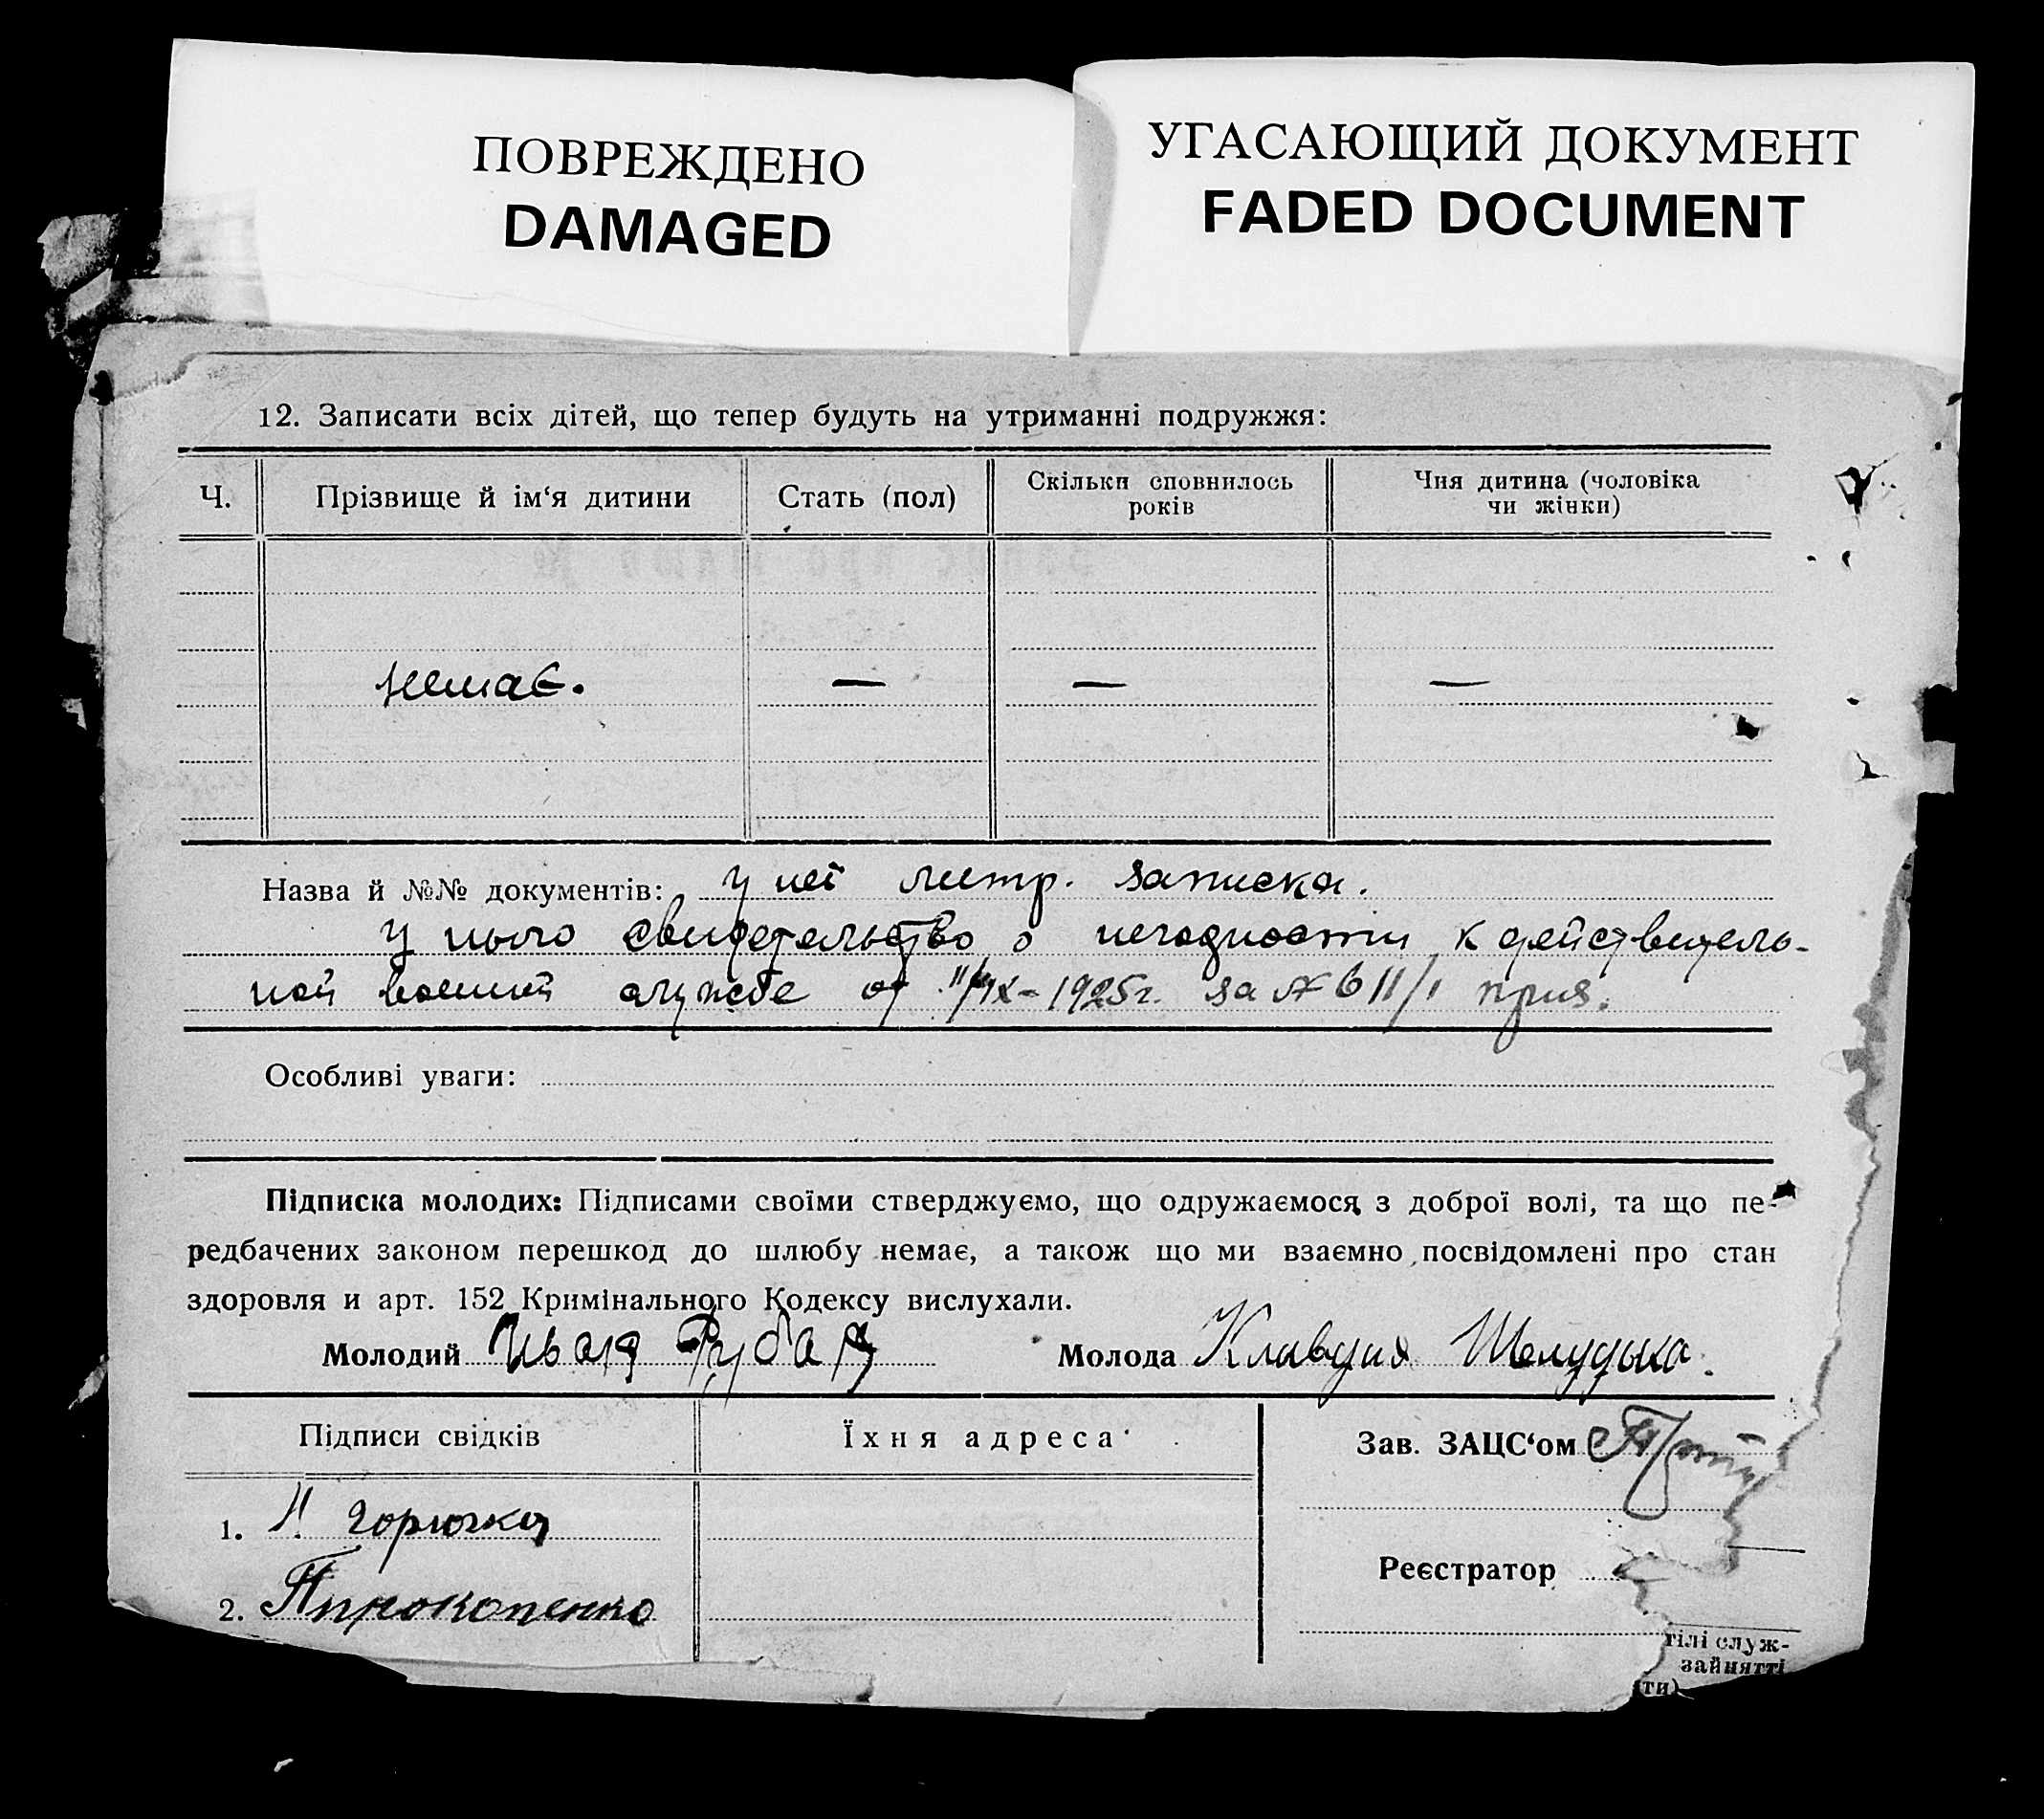 ПОВРЕЖДЕНО
DAMAGED
УГАСАЮЩИЙ ДОКУМЕНТ
FADED DOCUMENT
12. Записати всіх дітей, що тепер будуть на утриманні подружжя:
Ч.
Прізвище й ім‘я дитини
Стать (пол)
Скільки сповнилось
років
Чия дитина (чоловіка
чи жінки)
немає. — — —
Назва й №№ документів: у неї метр. записка.
у нього свидетельство о негодности к действитель-
ной военной службе от 11/IX-1925г. за № 611/1
Особливі уваги:
Підписка молодих: Підписами своїми стверджуємо, що одружаємося з доброї волі, та що пе-
редбачених законом перешкод до шлюбу немає, а також що ми взаємно посвідомлені про стан
здоровля и арт. 152 Кримінального Кодексу вислухали.
Молодий Иван Рубан Молода Клавдия Шелудько.
Підписи свідків
Їхня адреса
Зав. ЗАЦС‘ом
1.
2. Прокопенко
Реєстратор
тілі служ-
зайнятті
ти)